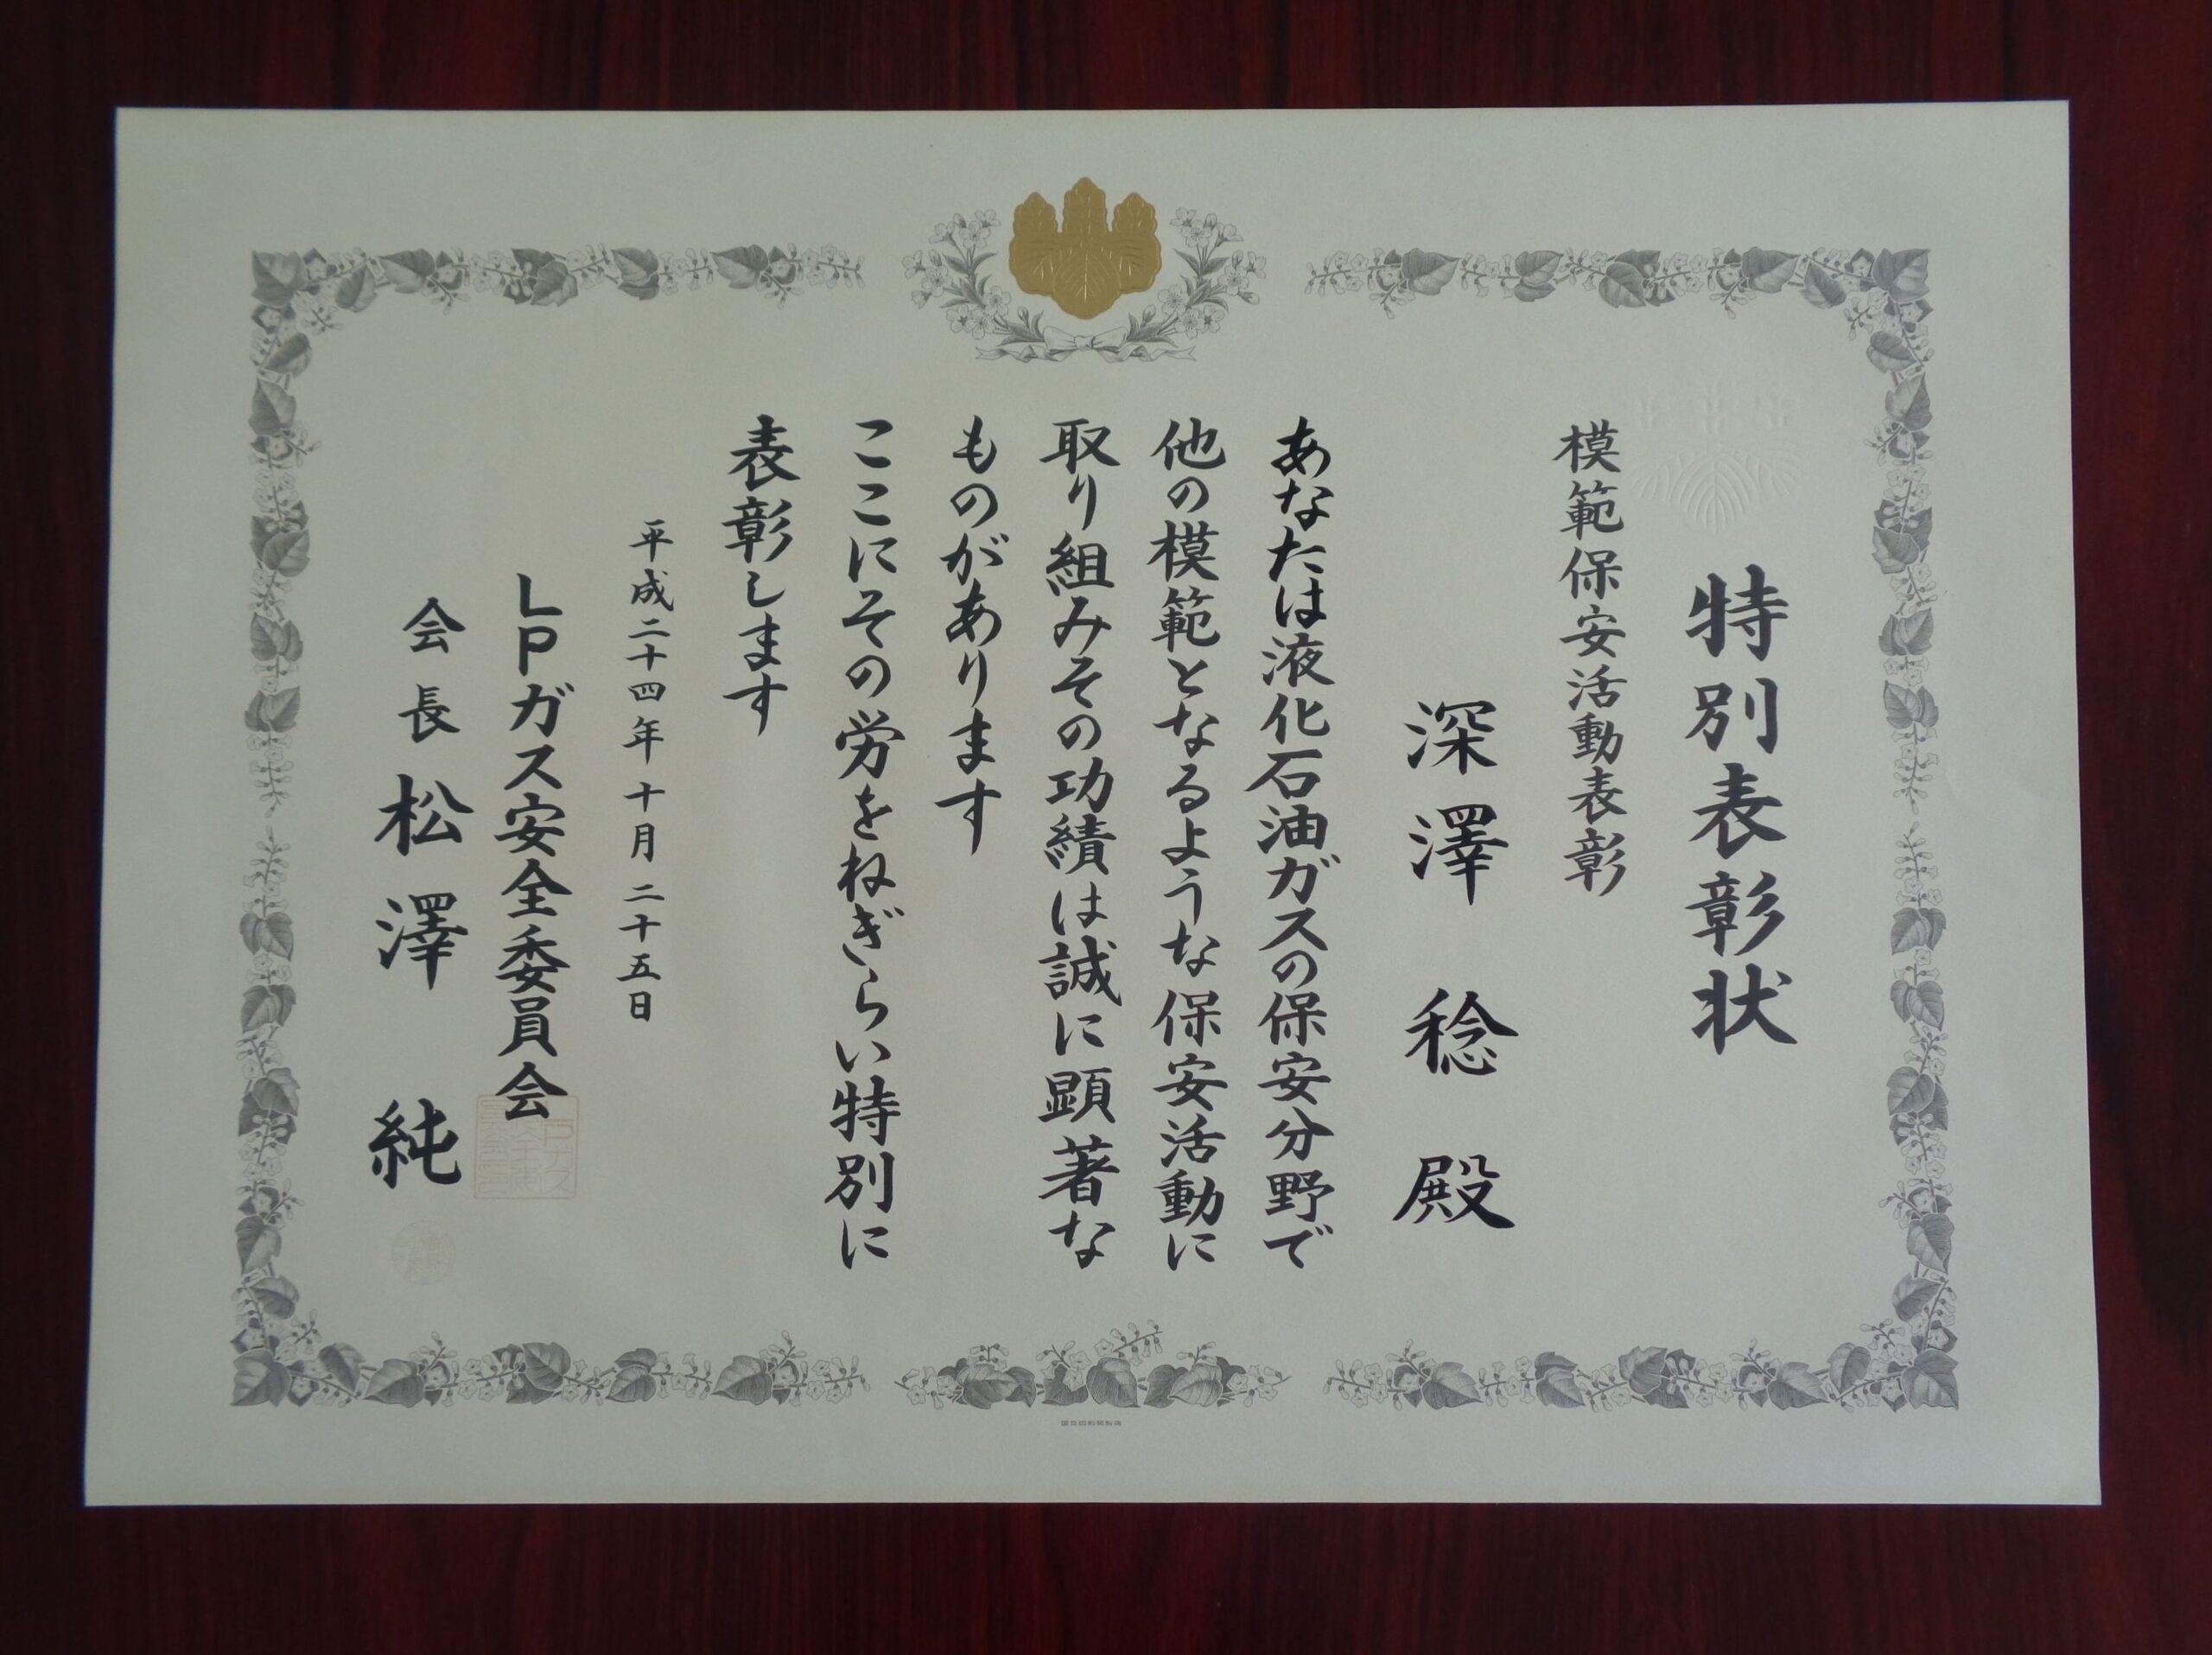 特別表彰状
模範保安活動表彰
深澤 稔 殿
あなたは液化石油ガスの保安分野で
他の模範となるような保安活動に
取り組みその功績は誠に顕著な
ものがあります
ここにその労をねぎらい特別に
表彰します
平成二十四年十月二十五日
LPガス安全委員会
会長 松澤 純